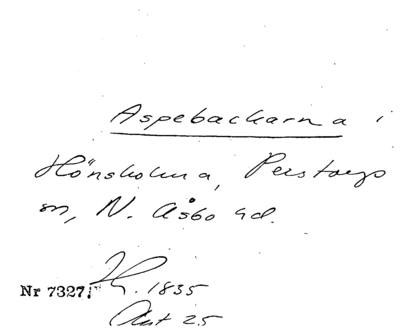 Aspebackarna i
Hönsholma, Perstorps
sn, N. Åsbo hd.
Nr 7327. 1835
Akt 25